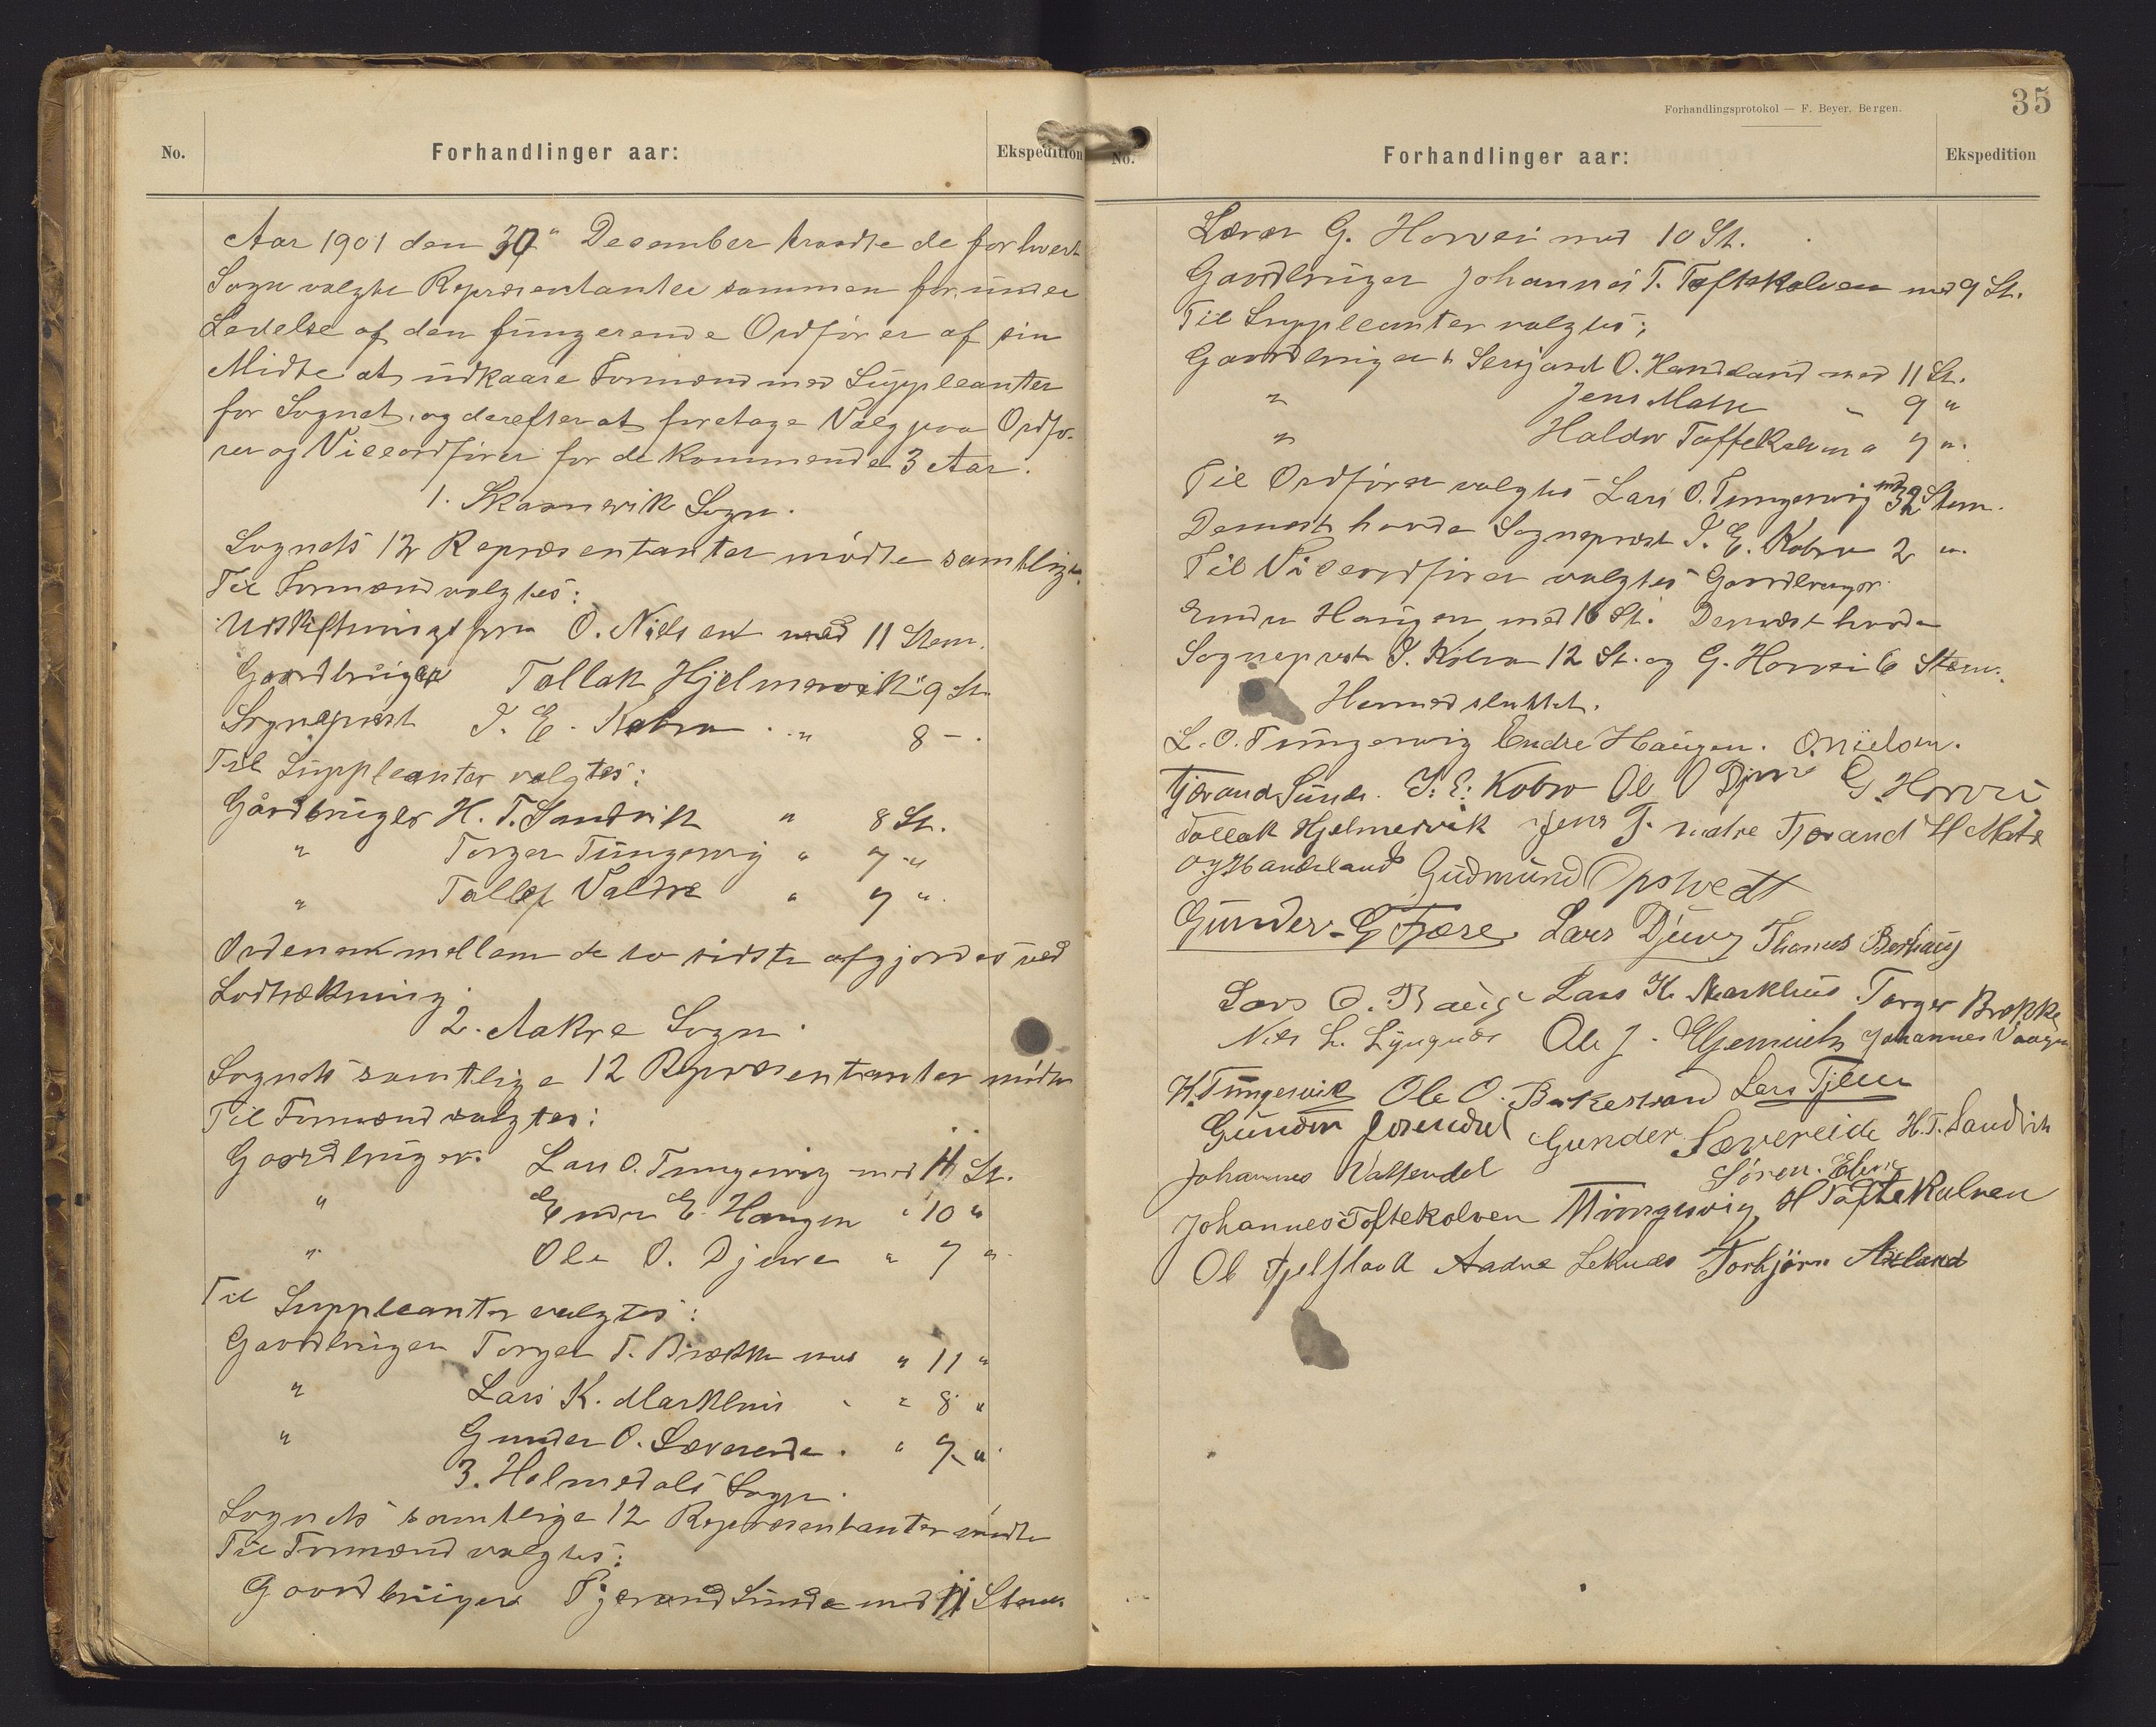 No.
Forhandlinger aar:
Ekspedition
Aar 1901 den 30" December traadte de for hvert
Sogn valgte Repræsentanter sammen for under
Ledelse af den fungerende Ordfører af sin
Midte at udkaare Formænd med Suppleanter
for Sognet, og derefter at foretage Valg paa Ordfø-
rer og Viceordfører for de kommende 3 Aar.
1. Skaanevik Sogn.
Sognets 12 Repræsentanter mødte samtlige.
Til Formænd valgtes:
Udskiftningsfm O. Nielsen med 11 Stem.
Gaardbruger Tollak Hjelmervik " 9 St.
Sogneprest I. E. Kobro " 8 -
Til Suppleanter valgtes:
Gårdbruger H. T. Sandvik " 8 St.
" Torger Tungesvig " 7 "
" Tollef Valdre " 7 "
Ordenen mellem de to sidste afgjordes ved
Lodtrækning.
2. Aakre Sogn.
Sognets samtlige 12 Repræsentanter mødte
Til Formænd valgtes:
Gaardbruger Lars O. Tungesvig med 11 St.
" Endre E. Haugen " 10 "
" Ole O. Djuve " 7 "
Til Suppleanter valgtes:
Gaardbruger Torger T. Brække med " 11 "
" Lars K. Markhus " 8 "
" Gunder O. Sævereide " 7 "
3. Holmedals Sogn.
Sognets samtlige 12 Repræsentanter mødte
Til Formænd valgtes:
Gaardbruger Tjerand Sunde med 11 Stem.
Forhandlingsprotokol — F. Beyer, Bergen.
35
No.
Forhandlinger aar:
Ekspedition
Lærer G. Horvei med 10 St.
Gaardbruger Johannes T. Toftekalven med 9 St.
Til Suppleanter valgtes:
Gaardbruger Sersjant O. Handeland med 11 St.
" Jens Matre " 9 "
" Haldor Toftekalven " 7 "
Til Ordfører valgtes Lars O. Tungesvig med 32 Stem.
Dernest havde Sogneprest I. E. Kobro 2 "
Til Viceordfører valgtes Gaardbruger
Endre Haugen med 16 St. Dernæst havde
Sogneprest I. Kobro 12 St. og G. Horvei 6 Stem.
Hermed sluttet.
L. O. Tungesvig Endre Haugen. O. Nielsen.
Tjerand Sunde. I. E. Kobro Ole O Djuve G. Horvei
Tollak Hjelmervik Jens T. Matre Tjerand H Matre
O. J. Handeland Gudmund Opstvedt
Gunder G Fjære Lars Djuv Thomas Berhaug
Lars O. Hauge Lars K. Markhus Torger Brekke
Nils L. Lyngnes Ole J. Johannes Vaage
K. Tungesvik Ole O. Lars
Gunder Gunder Sævereide H. T. Sandvik
Johannes Valsendel Søren
Johannes Toftekalven Tungesvig H Toftekalven
Ole Fjelstad Aadne Leknes Torbjørn Axland